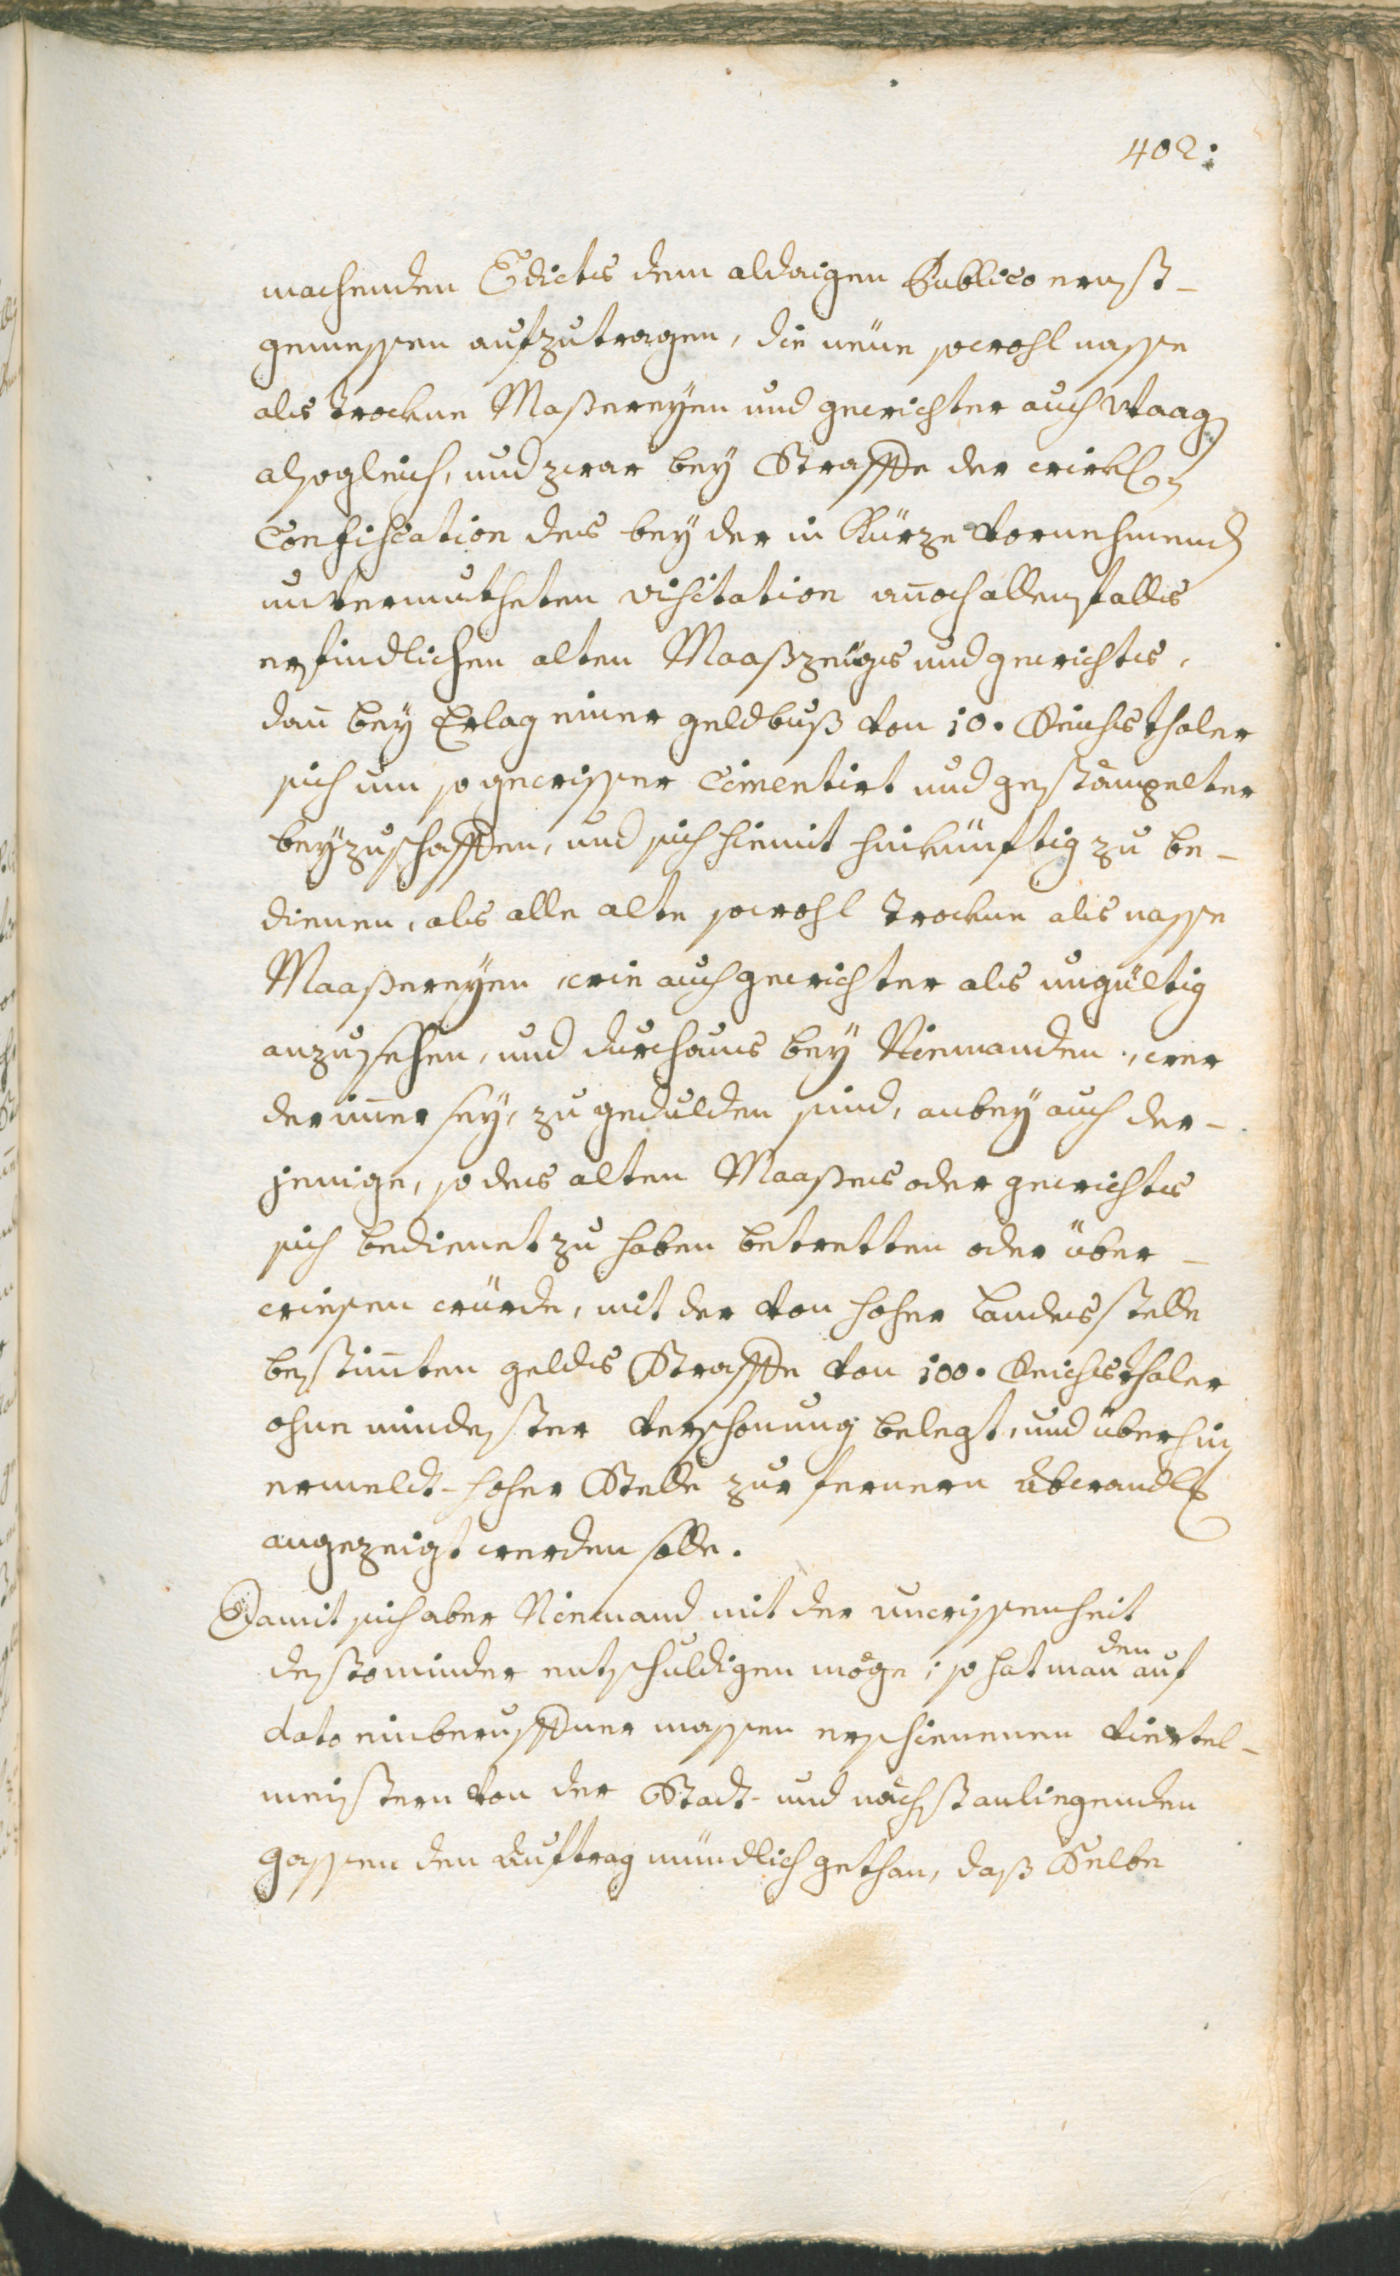 402:
machenden Edicts dem aldaigen Publico ernst-
gemessen aufzutragen, die neüe sowohl nasse
als trockne Maßereÿen und gewichter auch Waag
alsogleich, und zwar beÿ Straffe der würkl:
Confiscation des beÿ der in Kürze vornehmend
unvermutheten visitation annoch allenfalls
erfindlichen alten Maaßzeugs und gewichts,
dann beÿ Erlag einer geldbuß von 10. Reichsthaler
sich um so gewisser Cimentirt und gestämpelter
beÿzuschaffen, und sich hiemit hinkünftig zu be-
dienen, als alle alte sowohl trockne als nasse
Maaßereÿen, wie auch gewichter als ungültig
anzusehen, und durchaus beÿ Niemanden, wer
der immer seÿ, zu gedulden sind, anbeÿ auch der-
jenige, so des alten Maaßes oder gewichts
sich bedienet zu haben betretten oder über-
wiesen würde, mit der von hoher Landesstelle
bestimmten gelds Straffe von 100. Reichsthaler
ohne mindester Verschonung belegt, und überhin
ermeldt-hoher Stelle zur fernern Abwandlg
angezeigt werden solle.
Damit sich aber Niemand mit der unwissenheit
destominder entschuldigen möge; so hat man den auf
dato einberuffener massen erschienenen Viertel-
meistern von der Stadt- und nächst anliegenden
gassen den Auftrag mündlich gethan, daß Selbe